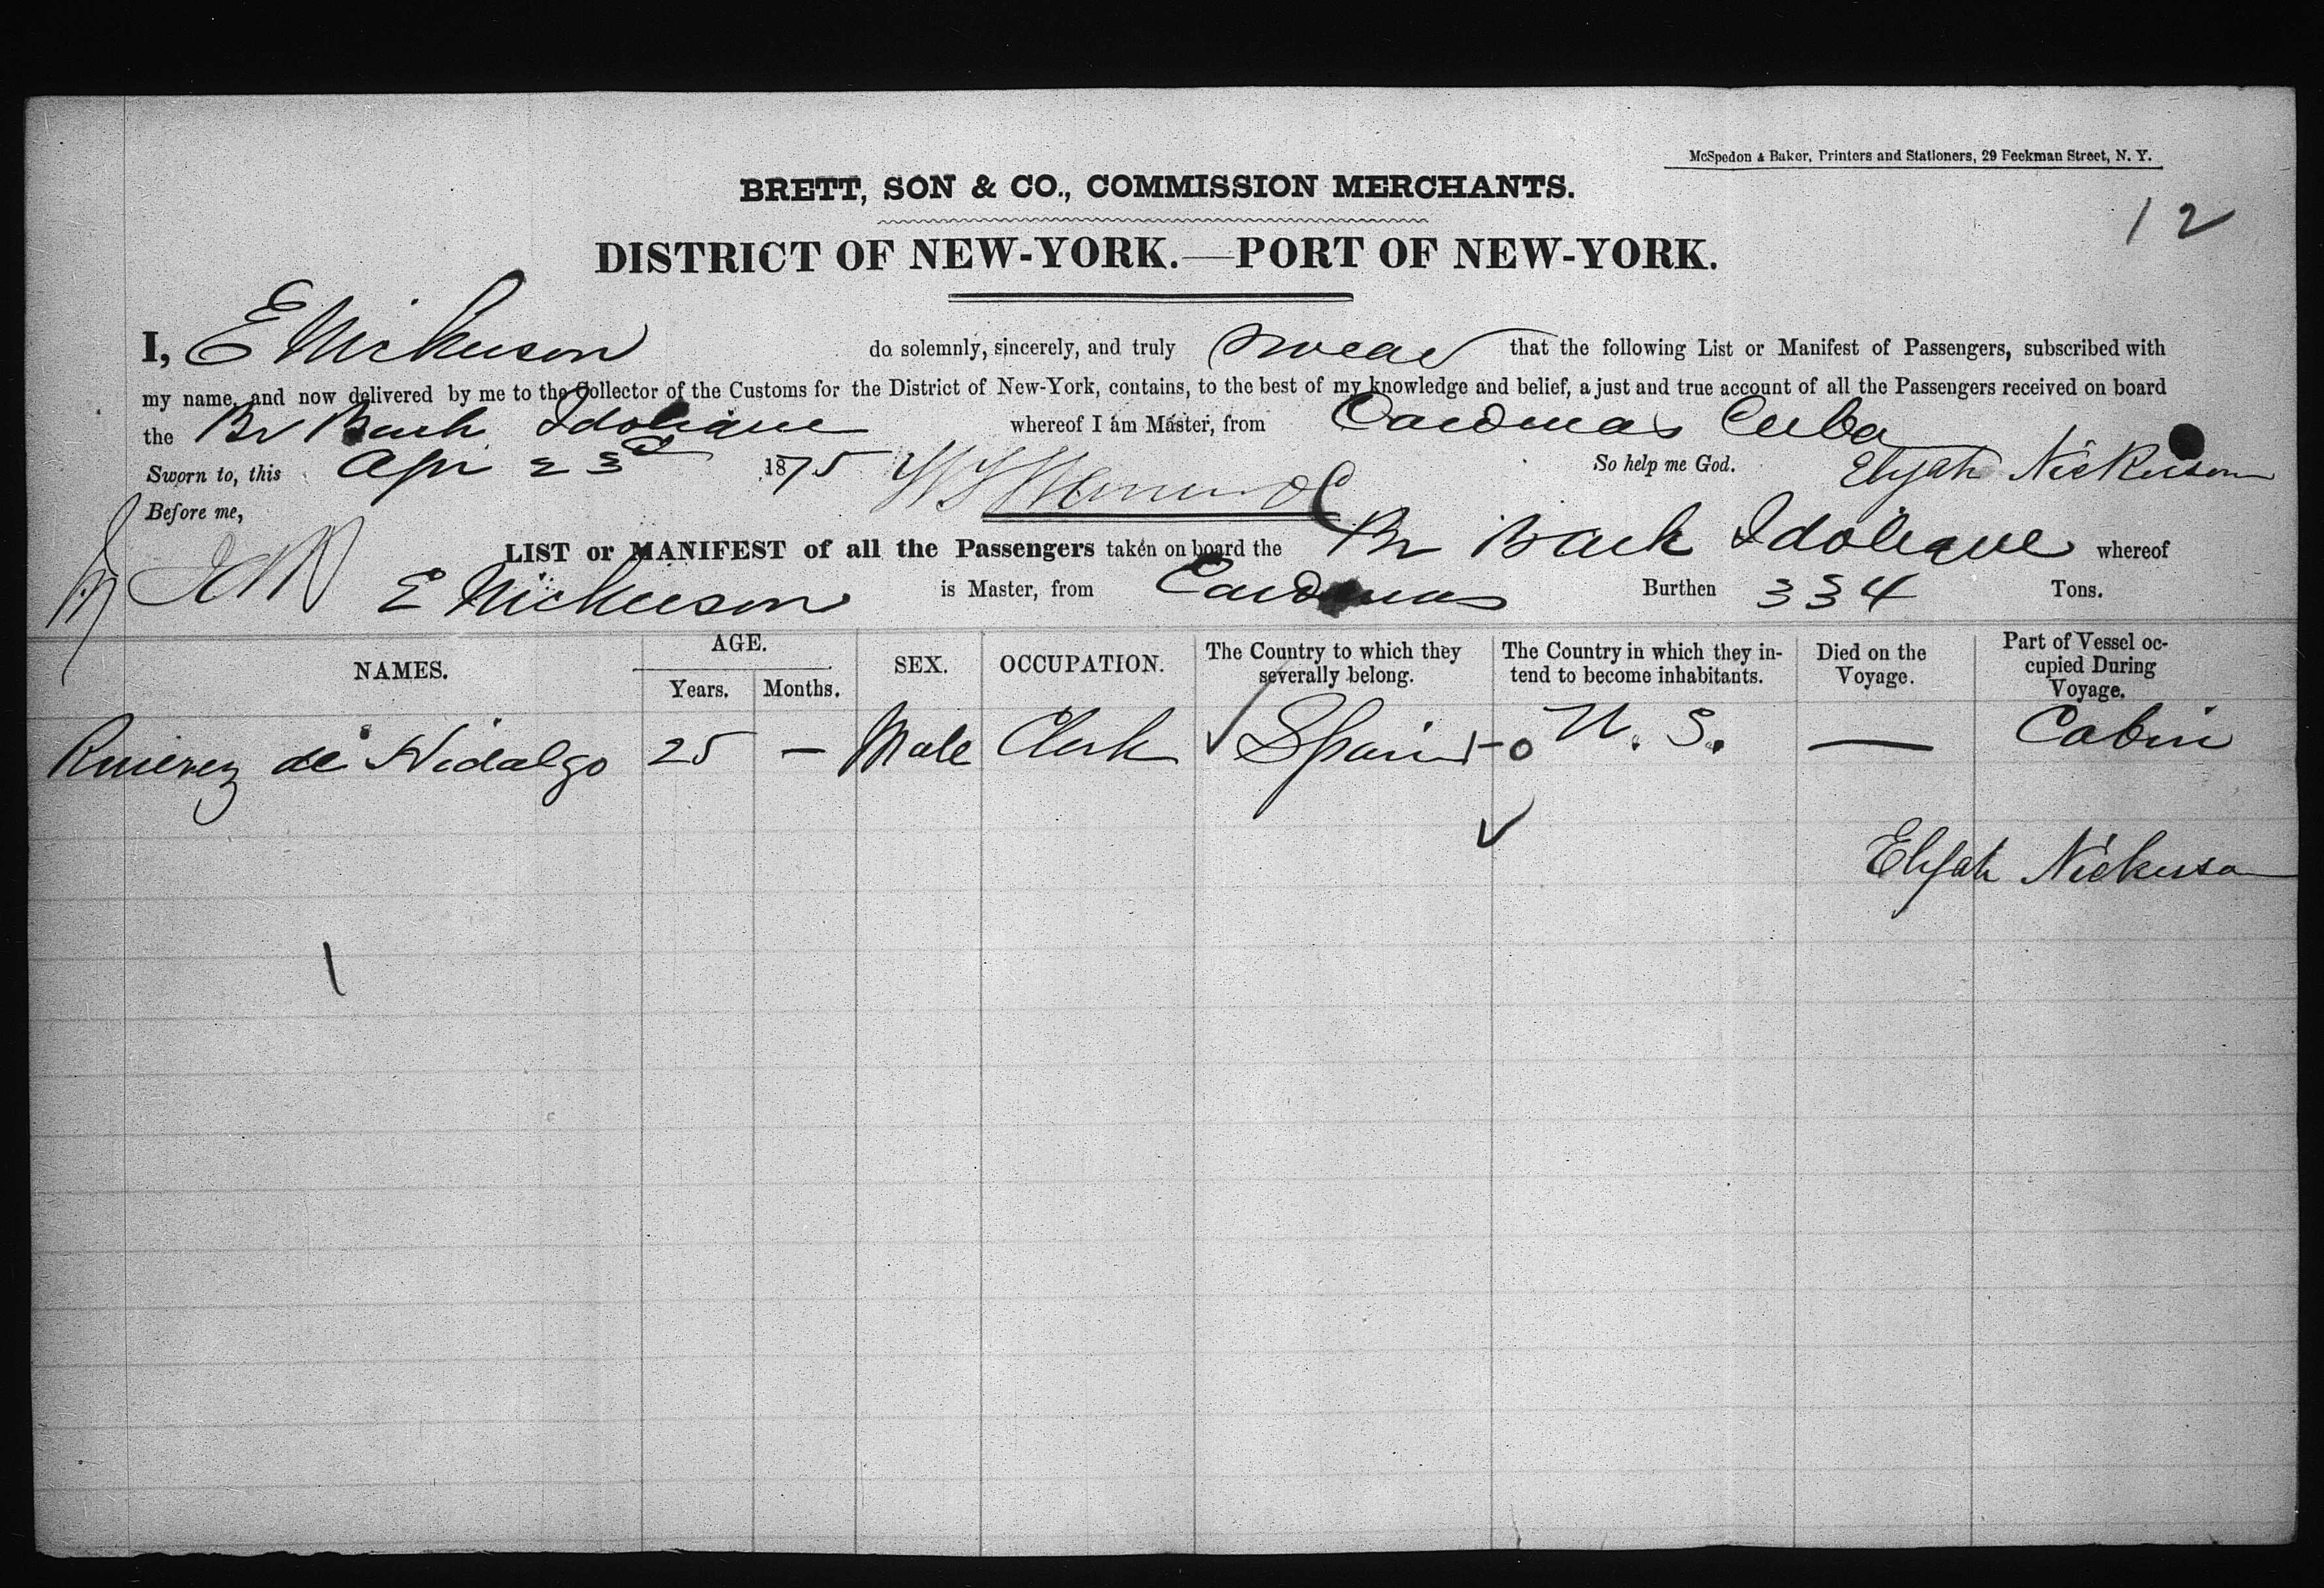 McSpedon & Baker, Printers and Stationers, 29 Beekman Street, N. Y.
BRETT, SON & CO., COMMISSION MERCHANTS.
12
DISTRICT OF NEW-YORK.—PORT OF NEW-YORK.
I, E Nickerson do solemnly, sincerely, and truly swear that the following List or Manifest of Passengers, subscribed with
my name, and now delivered by me to the Collector of the Customs for the District of New-York, contains, to the best of my knowledge and belief, a just and true account of all the Passengers received on board
the Br Bark Idolique whereof I am Master, from Cardenas Cuba
Sworn to, this Apr 23d 1875 So help me God. Elijah Nickerson
Before me,
LIST or MANIFEST of all the Passengers taken on board the Br Bark Idolique whereof
E Nickerson is Master, from Cardenas Burthen 334 Tons.
NAMES. AGE. Years. Months. SEX. OCCUPATION. The Country to which they severally belong. The Country in which they intend to become inhabitants. Died on the Voyage. Part of Vessel occupied During Voyage.
de Hidalgo 25 — Male Clerk Spain U. S. — Cabin
Elijah Nickerson
1